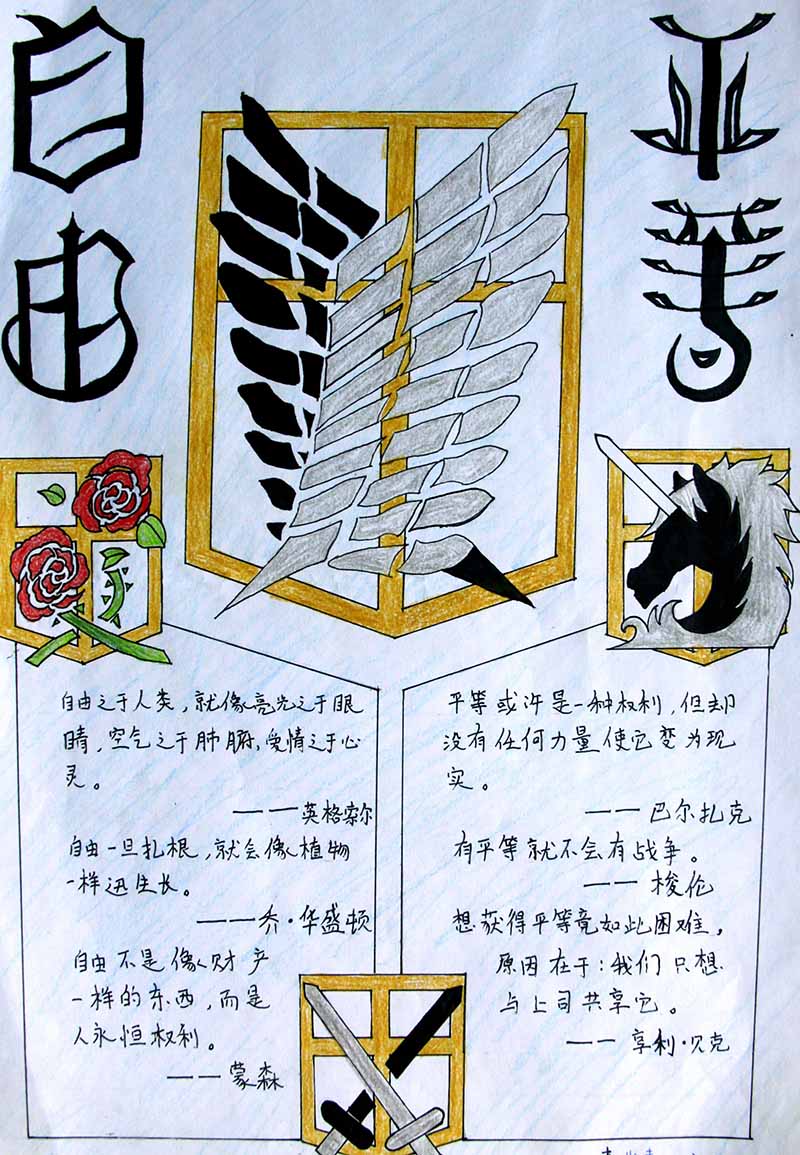 自由
平等
自由之于人类，就像亮光之于眼
睛，空气之于肺腑，爱情之于心
灵。
——英格索尔
自由一旦扎根，就会像植物
一样迅生长。
——乔·华盛顿
自由不是像财产
一样的东西，而是
人永恒权利。
——蒙森
平等或许是一种权利，但却
没有任何力量使它变为现
实。
——巴尔扎克
有平等就不会有战争。
——梭伦
想获得平等竟如此困难，
原因在于：我们只想
与上司共享它。
——享利·贝克